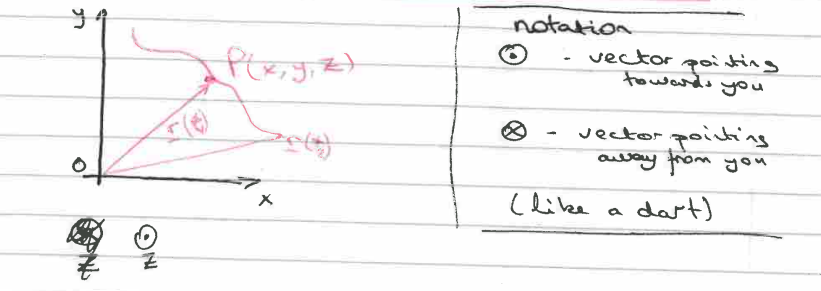 y
P(x, y, z)
r(t₁)
r(t₂)
0
x
z
z
notation
⊙ - vector pointing
towards you
⊗ - vector pointing
away from you
(like a dart)